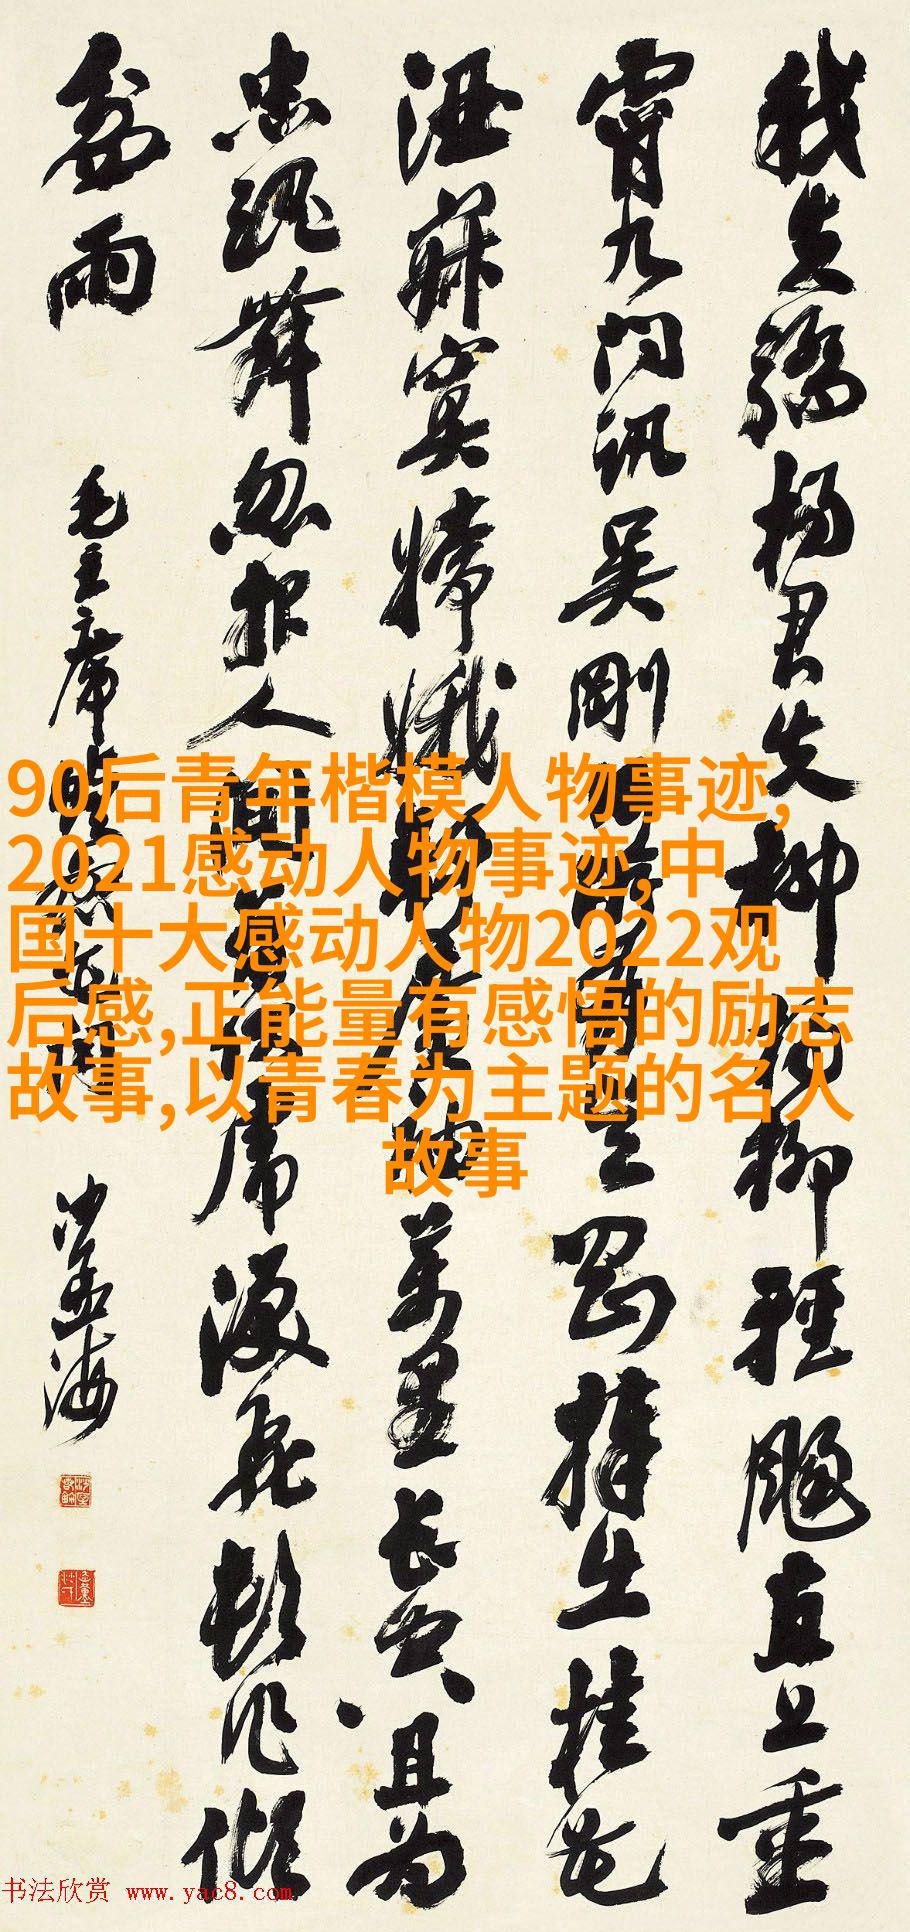 我失驕楊君失柳楊柳輕颺直上重
霄九问讯吴剛捧出桂花
酒寂寞嫦娥萬里长空且为
忠魂舞忽报人间虎淚飛頓作傾
盆雨
毛主席
沙孟海
90后青年楷模人物事迹,
2021感动人物事迹,中
国十大感动人物2022观
后感,正能量有感悟的励志
故事,以青春为主题的名人
故事
书法欣赏 www.yac8.com